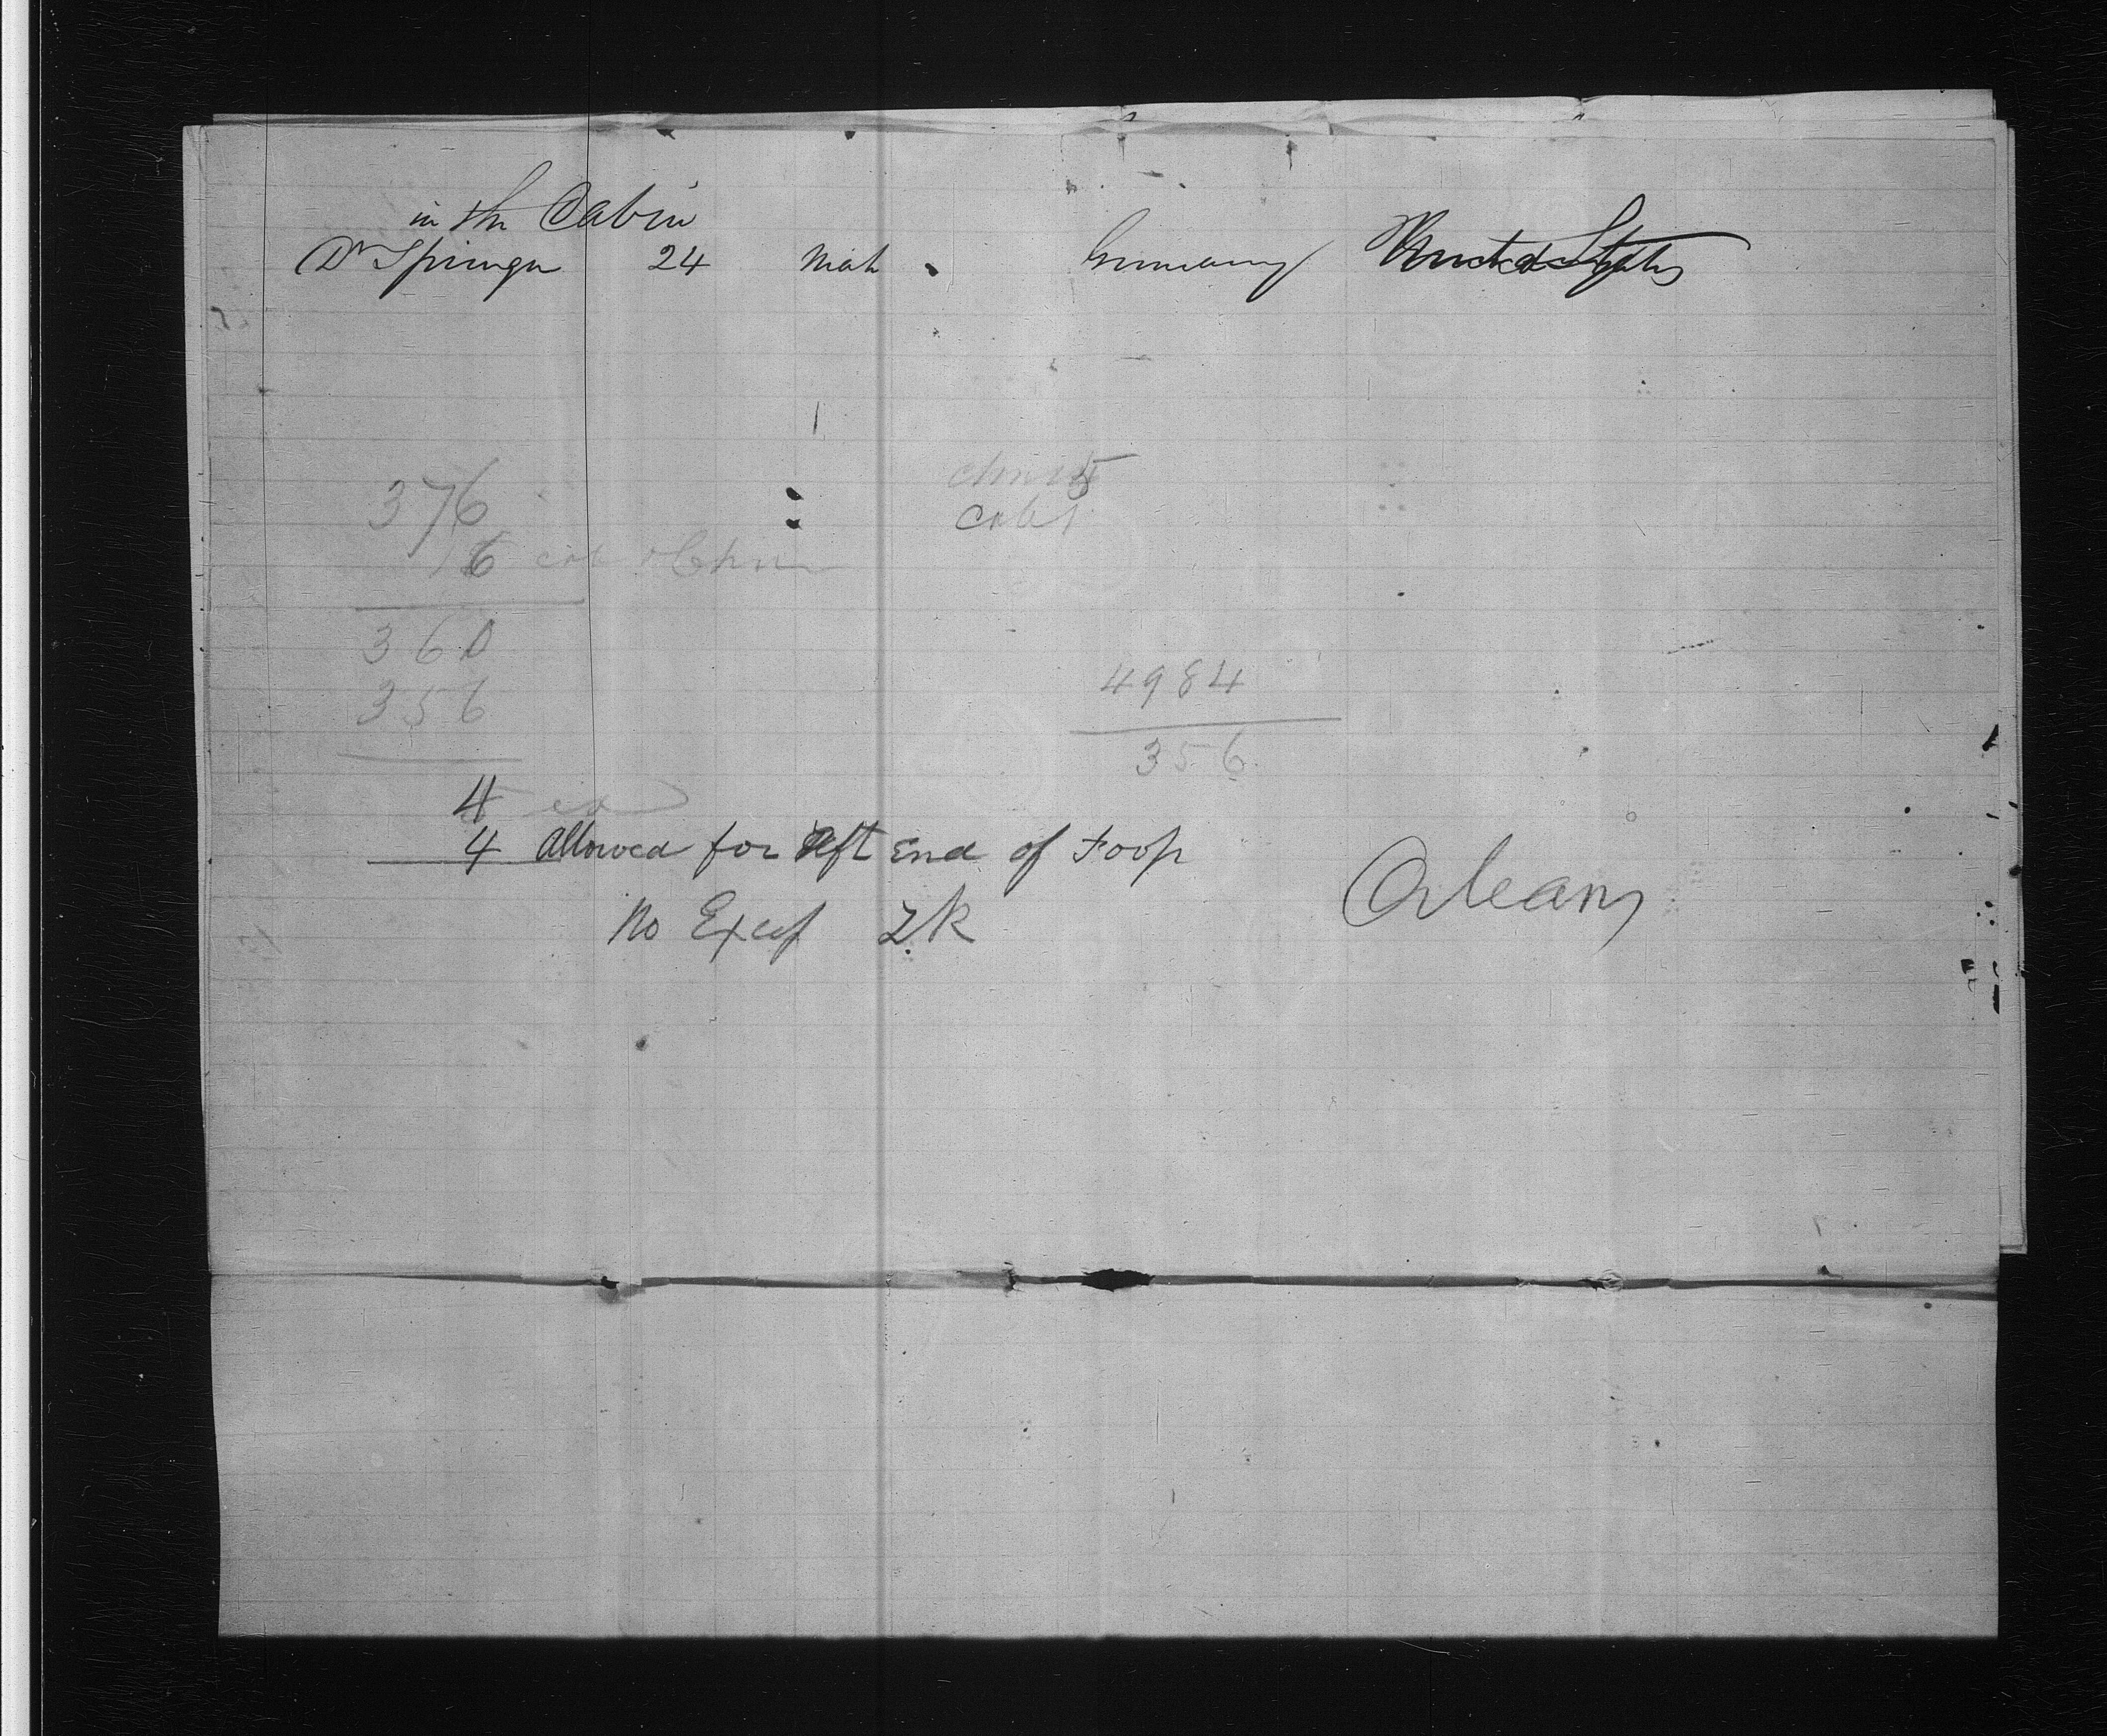 in the Cabin
Dr Springer 24 Male Germany United States
376
6 cab
cab
360
356
4984
356
4
4 allowed for Aft End of Poop
No Excess
Orleans